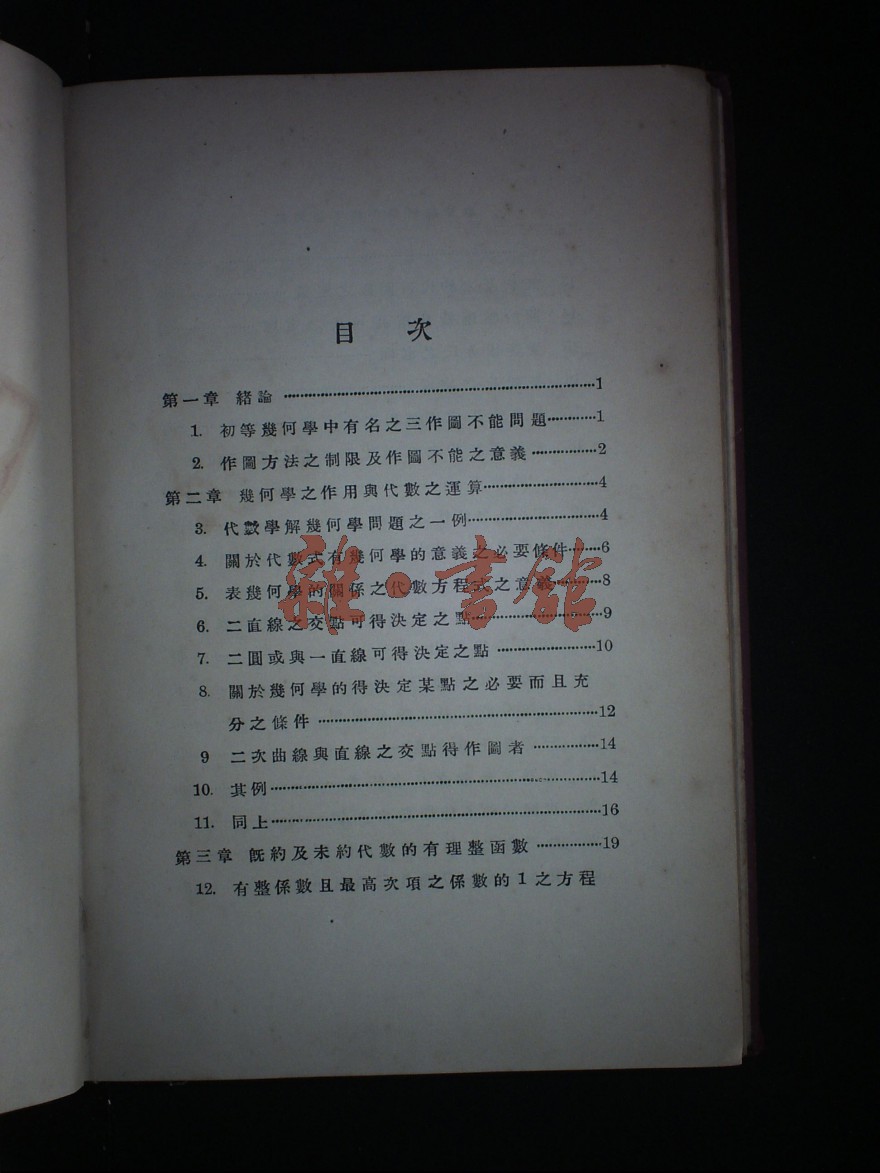 目次
第一章 緒論 ……1
1. 初等幾何學中有名之三作圖不能問題……1
2. 作圖方法之制限及作圖不能之意義……2
第二章 幾何學之作用與代數之運算……4
3. 代數學解幾何學問題之一例……4
4. 關於代數式有幾何學的意義之必要條件……6
5. 表幾何學的關係之代數方程式之意義……8
6. 二直線之交點可得決定之點……9
7. 二圓或與一直線可得決定之點……10
8. 關於幾何學的得決定某點之必要而且充
分之條件……12
9 二次曲線與直線之交點得作圖者……14
10. 其例……14
11. 同上……16
第三章 旣約及未約代數的有理整函數……19
12. 有整係數且最高次項之係數的1之方程
雜·書館